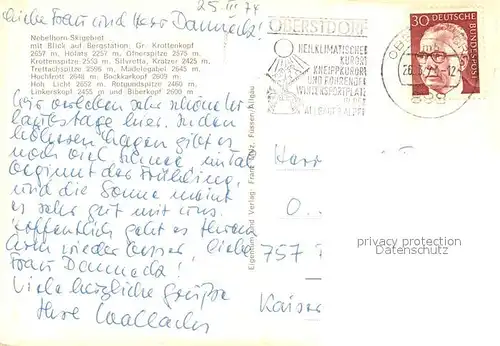 25. III 74
Liebe Frau und Herr Dannecke!
Nebelhorn-Skigebiet
mit Blick auf Bergstation, Gr. Krottenkopf
2657 m, Hofats 2257 m, Gfnerspitze 2575 m,
Krottenspitze 2553 m, Silvretta, Kratzer 2425 m,
Trettachspitze 2596 m, Mädelegabel 2645 m,
Hochfrott 2648 m, Bockkarkopf 2609 m,
Hoh. Licht 2652 m, Rotgundspitze 2460 m,
Linkerskopf 2455 m und Biberkopf 2600 m
Wir verleben sehr schöne
hier. In den
höheren Lagen gibt es
noch viel Schnee, im Tal
beginnt der Frühling,
und die Sonne meint
es sehr gut mit uns.
Hoffentlich geht es Ihrem
Arm wieder besser, liebe
Frau Dannecke!
Viele herzliche Grüße
Ihre
Eigentum und Verlag: Franz Milz, Füssen/Allgäu
OBERSTDORF
HEILKLIMATISCHER
KURORT
KNEIPPKURORT
UND FÜHRENDER
WINTERSPORTPLATZ
IN DEN
ALLGÄUER ALPEN
26.3.74-12
899
30 DEUTSCHE
BUNDESPOST
Herr
O..
757
Kaiser
privacy protection
Datenschutz